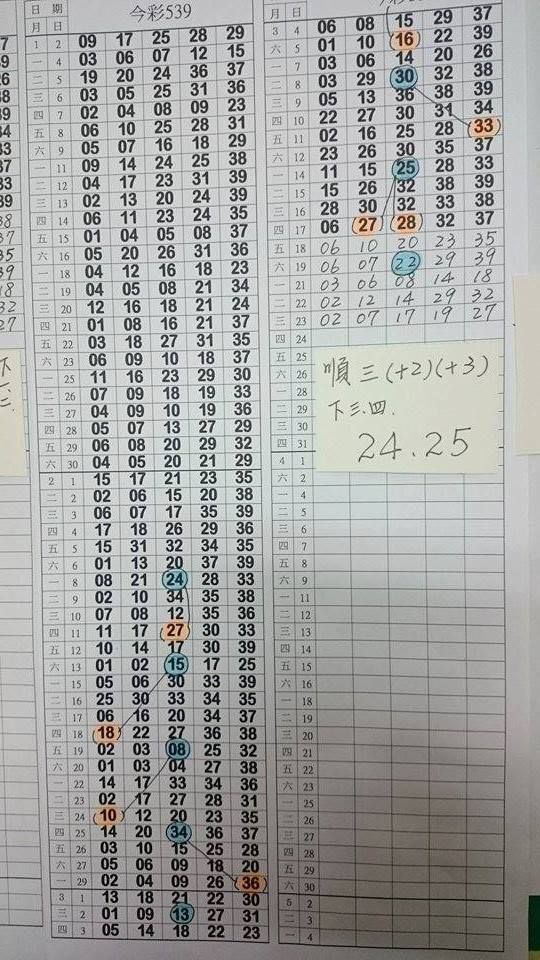 今彩539
日 期
1 2 09 17 25 28 29
一 4 03 06 07 12 15
二 5 19 20 24 36 37
三 6 03 05 25 31 36
四 7 02 04 08 09 23
五 8 06 10 25 28 31
六 9 05 07 16 18 29
一 11 09 14 24 25 38
二 12 04 17 23 31 39
三 13 02 13 20 24 39
四 14 06 11 23 24 35
五 15 01 04 05 08 37
六 16 05 20 26 31 36
一 18 04 12 16 18 23
二 19 04 05 08 21 34
三 20 12 16 18 21 24
四 21 01 08 16 21 37
五 22 03 18 27 31 35
六 23 06 09 10 18 37
一 25 11 16 23 29 30
二 26 07 09 18 19 33
三 27 04 09 10 19 36
四 28 05 07 13 27 29
五 29 06 08 20 29 32
六 30 04 05 20 21 29
2 1 15 17 21 23 35
二 2 02 06 15 20 38
三 3 06 07 17 35 39
四 4 17 18 26 29 36
五 5 15 31 32 34 35
六 6 01 13 20 37 39
一 8 08 21 24 28 33
二 9 02 10 34 35 38
三 10 07 08 12 35 36
四 11 11 17 27 30 33
五 12 10 14 17 30 39
六 13 01 02 15 17 25
一 15 05 06 30 33 39
二 16 25 30 33 34 35
三 17 06 16 20 34 37
四 18 18 22 27 36 38
五 19 02 03 08 25 32
六 20 01 03 04 27 38
一 22 14 17 33 34 36
二 23 02 17 27 28 31
三 24 10 12 20 23 35
四 25 14 20 34 36 37
五 26 03 10 15 25 28
六 27 05 06 09 18 20
一 29 02 04 09 26 36
3 1 13 18 21 22 30
三 2 01 09 13 27 31
四 3 05 14 18 22 23
月 日
3 4 06 08 15 29 37
六 5 01 10 16 22 39
一 7 03 06 14 20 26
二 8 03 29 30 32 38
三 9 05 13 36 38 39
四 10 22 27 30 31 34
五 11 02 16 25 28 33
六 12 23 26 30 35 37
一 14 11 15 25 28 33
二 15 15 26 32 38 39
三 16 28 30 32 33 38
四 17 06 27 28 32 37
五 18 06 10 20 23 35
六 19 06 07 22 29 39
一 21 03 06 08 14 18
二 22 02 12 14 29 32
三 23 02 07 17 19 27
四 24
五 25
六 26
一 28
二 29
三 30
四 31
4 1
六 2
一 4
二 5
三 6
四 7
五 8
六 9
一 11
二 12
三 13
四 14
五 15
六 16
一 18
二 19
三 20
四 21
五 22
六 23
一 25
二 26
三 27
四 28
五 29
六 30
5 2
二 3
一 4
順三(+2)(+3)
下三.四.
24.25